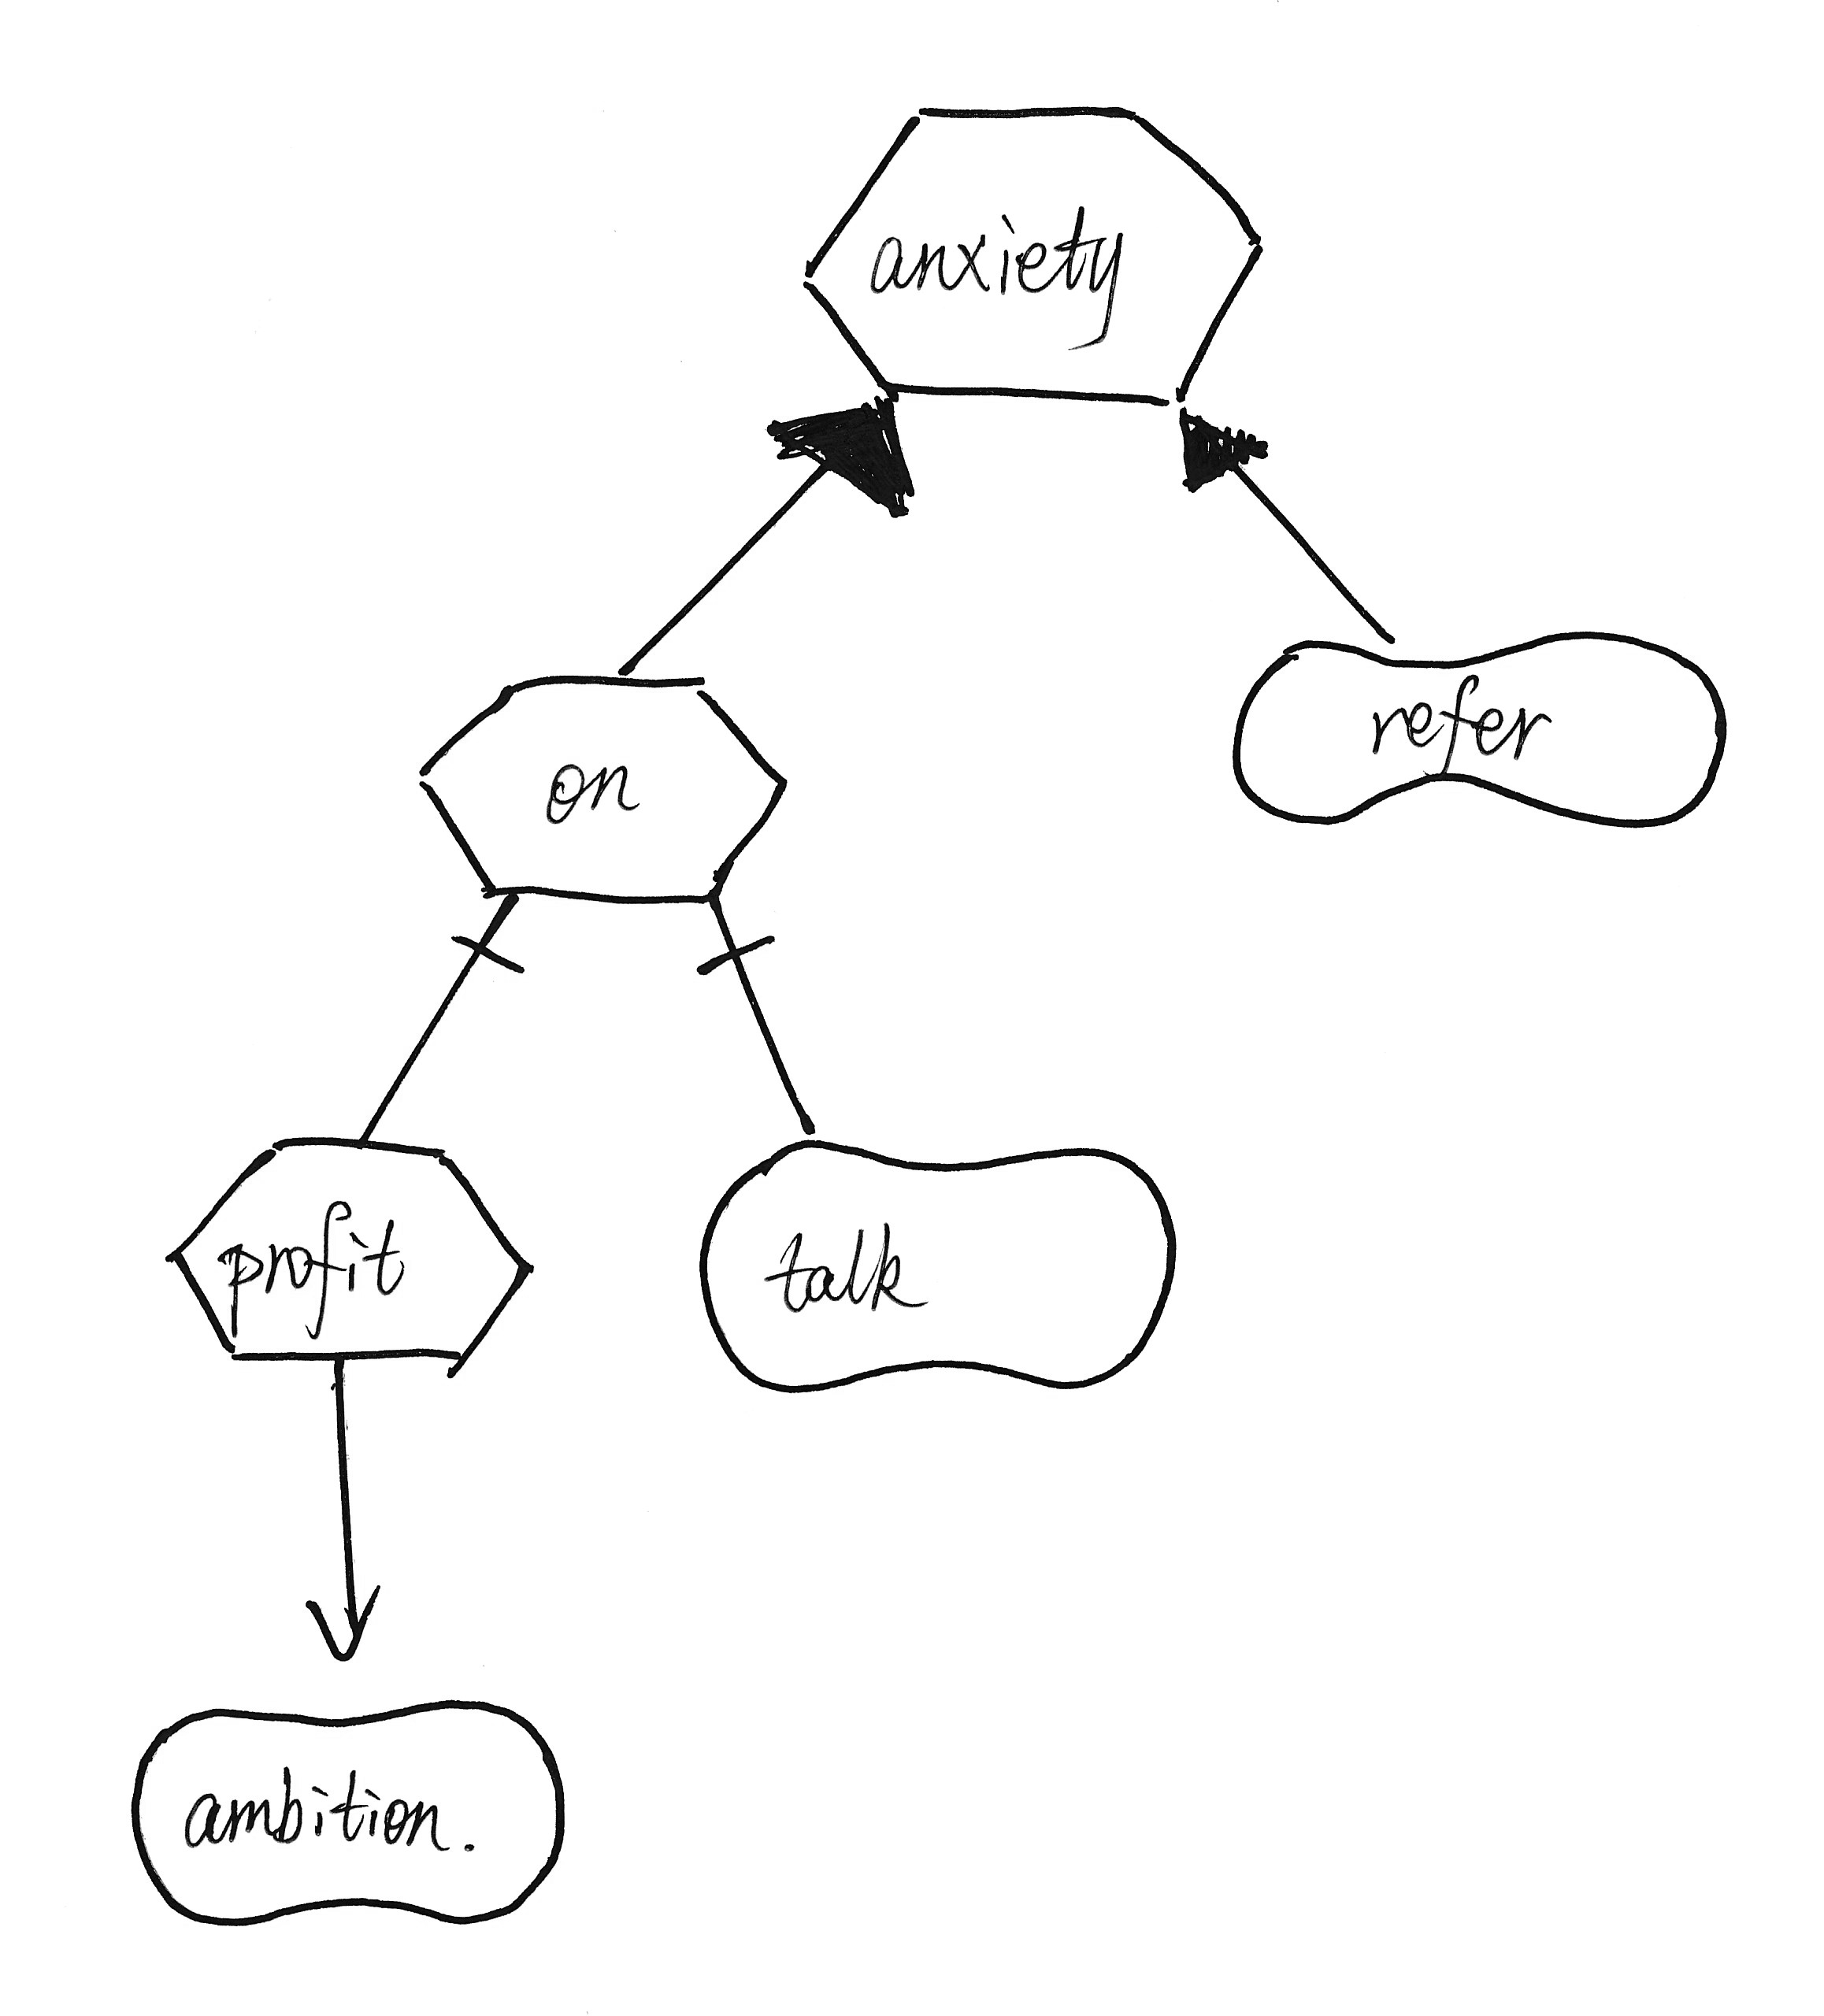 anxiety
refer
on
profit
talk
ambition.